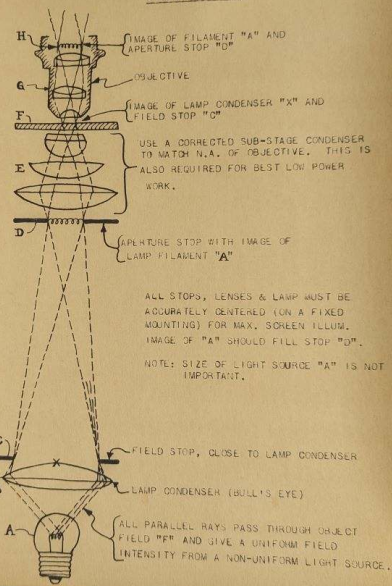 H
IMAGE OF FILAMENT "A" AND
APERTURE STOP "D"
OBJECTIVE
G
IMAGE OF LAMP CONDENSER "X" AND
FIELD STOP "C"
F
USE A CORRECTED SUB-STAGE CONDENSER
TO MATCH N.A. OF OBJECTIVE. THIS IS
ALSO REQUIRED FOR BEST LOW POWER
WORK.
E
D
APERTURE STOP WITH IMAGE OF
LAMP FILAMENT "A"
ALL STOPS, LENSES & LAMP MUST BE
ACCURATELY CENTERED (ON A FIXED
MOUNTING) FOR MAX. SCREEN ILLUM.
IMAGE OF "A" SHOULD FILL STOP "D".
NOTE: SIZE OF LIGHT SOURCE "A" IS NOT
IMPORTANT.
FIELD STOP, CLOSE TO LAMP CONDENSER
X
LAMP CONDENSER (BULL'S EYE)
A
ALL PARALLEL RAYS PASS THROUGH OBJECT
FIELD "F" AND GIVE A UNIFORM FIELD
INTENSITY FROM A NON-UNIFORM LIGHT SOURCE.